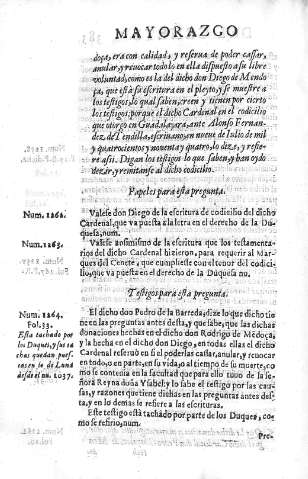 MAYORAZGO
doça, era con calidad, y reserua de poder cassar,
anular, y reuocar todo lo en ella dispuesto a su libre
voluntad, como es la del dicho don Diego de Mendo
ça, que està su escritura en el pleyto, y se muestre a
los testigos, lo qual saben, creen y tienen por cierto
los testigos: porque el dicho Cardenal en el codicilio
que otorgo en Guadalajara, ante Alonso Fernan-
dez, de Tendilla, escriuano, en nueue de Iulio de mil
y quatrocientos y nouenta y quatro, lo dize, y refie-
re assi. Digan los testigos lo que saben, y han oydo
dezir, y remitanse al dicho codicilio.
Papeles para esta pregunta.
Num. 1262.
Valese don Diego de la escritura de codicilio del dicho
Cardenal, que va puesta a la letra en el derecho de la Du
quesa, num.
Num. 1263.
Valese assimismo de la escritura que los testamenta-
rios del dicho Cardenal hizieron, para requerir al Mar-
ques del Cenete, que cumpliesse con el tenor del codici-
lio, que va puesta en el derecho de la Duquesa nu.
Testigos para esta pregunta.
Num. 1264.
Fol. 33.
Esta tachado por
los Duques, y sus ta
chas quedan pues-
tas en
desde el nu. 1037.
El dicho don Pedro de la Barreda, dize lo que dicho tie-
ne en las preguntas antes desta, y que sabe, que las dichas
donaciones hechas en el dicho don Rodrigo de Médoça,
y la hecha en el dicho don Diego, en todas ellas el dicho
Cardenal reseruò en si el poderlas cassar, anular, y reuocar
en todo, o en parte, en su vida, o al tiempo de su muerte, co
mo se contenia en la facultad que para ello tuuo de la se-
ñora Reyna doña Ysabel: y lo sabe el testigo por las cau-
sas, y razones que tiene dichas en las preguntas antes des-
ta, y en lo demas se refiere a las escrituras.
Este testigo està tachado por parte de los Duques, co-
mo se refirio, num.
Pre-